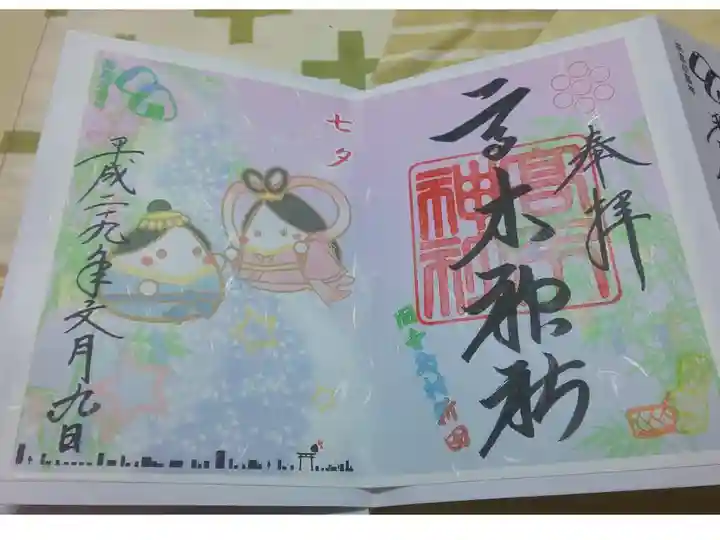 奉拝
高木神社
髙木
神社
七夕
平成二十九年文月九日